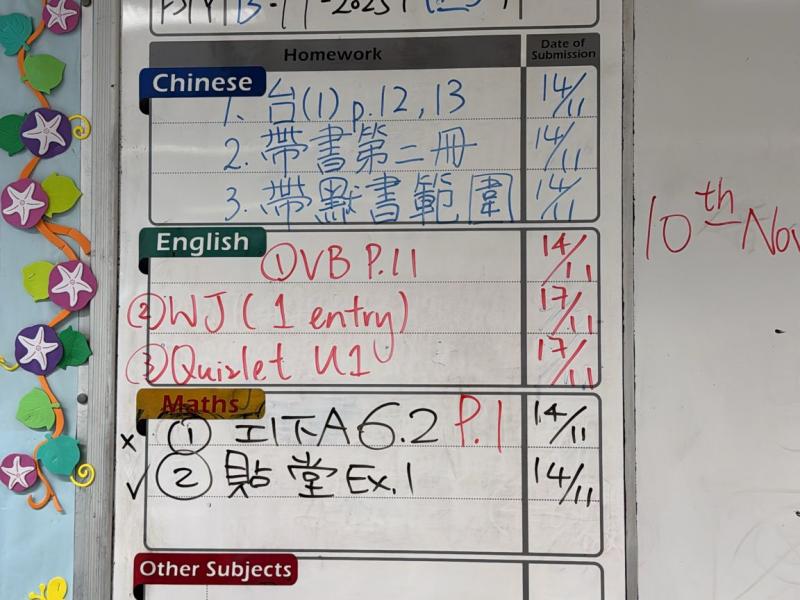 -2025
Homework Date of Submission
Chinese
1. 台(1) p.12,13 14/11
2. 帶書第二冊 14/11
3. 帶默書範圍 14/11
English
①VB P.11 14/11
②WJ (1 entry) 17/11
③Quizlet U1 17/11
Maths
x ① 工作A6.2 P.1 14/11
✓ ② 貼堂Ex.1 14/11
Other Subjects
10th Nov